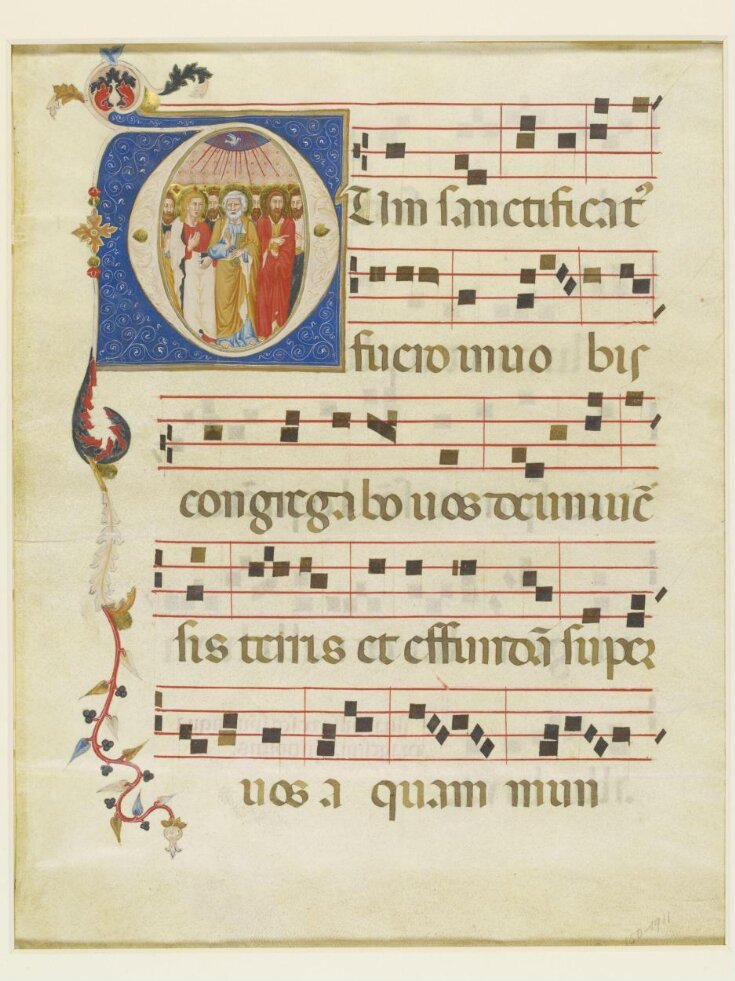 CUm sanctificatꝰ
fuero inuo bis
congregabo uos deuniuē
sis terris et effundā super
uos a quam mun